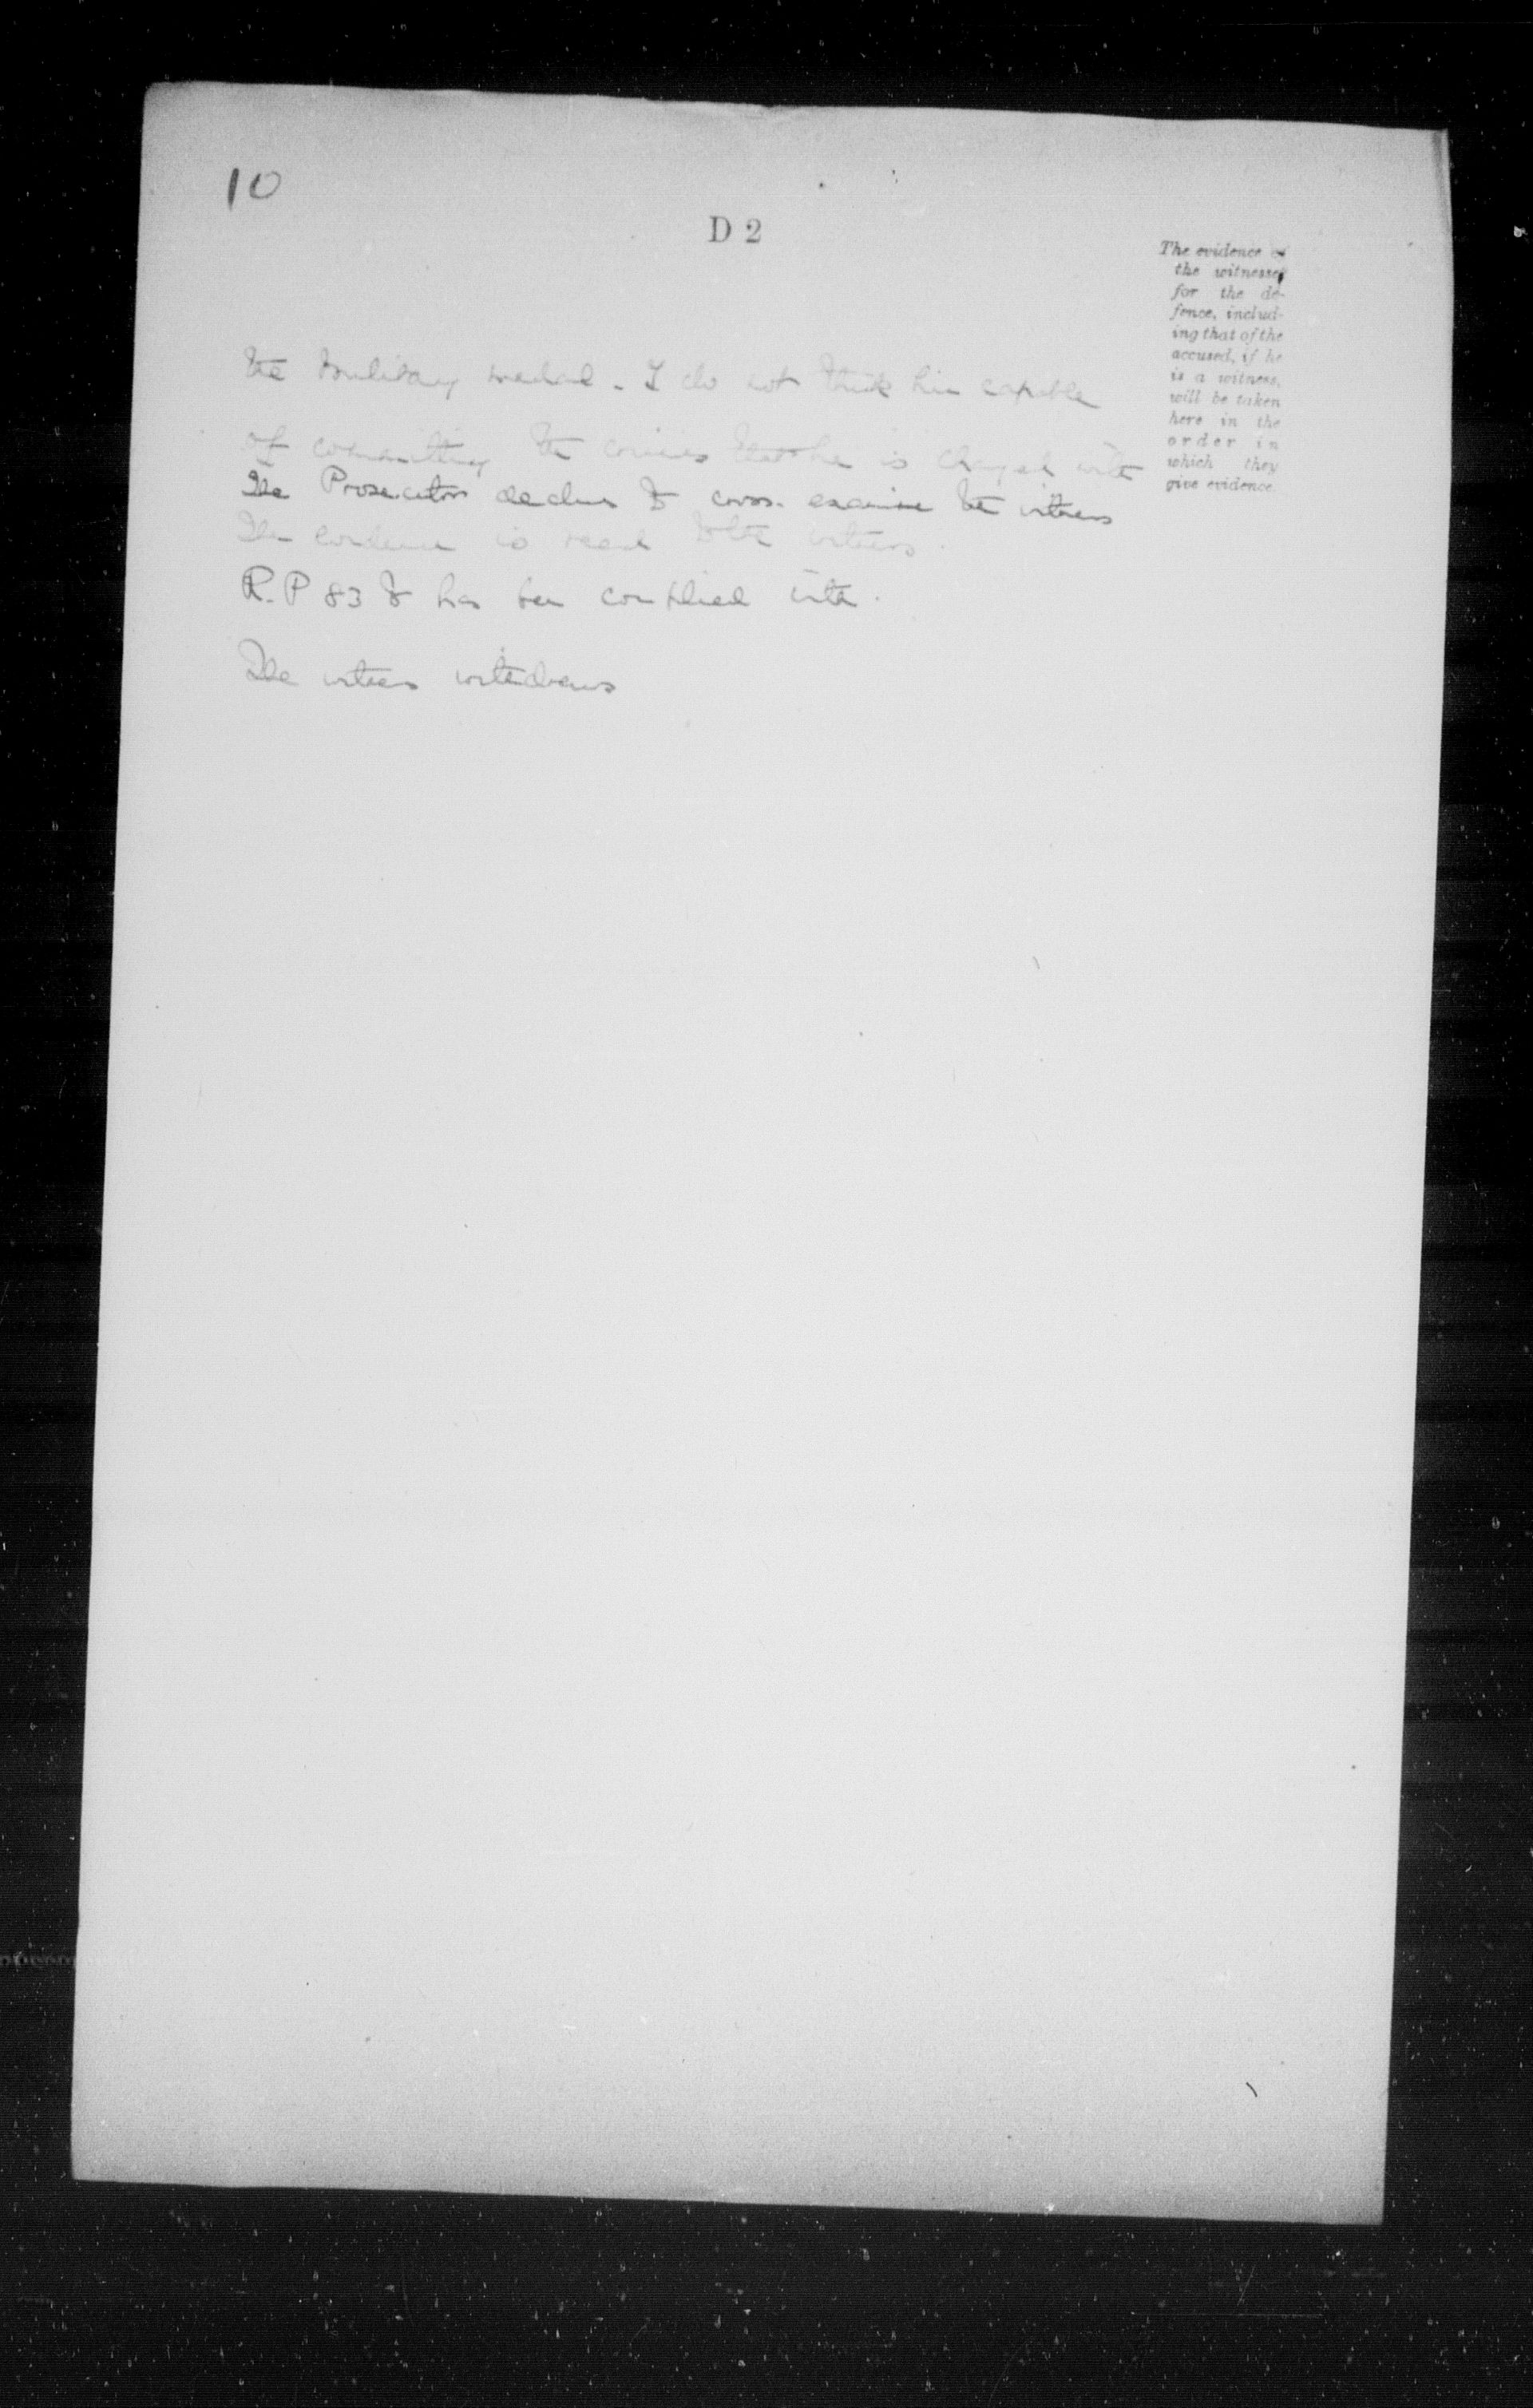 10
D 2
The evidence of
the witnesses
for the de-
fence, includ-
ing that of the
accused, if he
is a witness,
will be taken
here in the
order in
which they
give evidence.
the Military medal. I do not think him capable
of committing the crimes that he is charged with
The Prosecutor declines to cross-examine the witness
The evidence is read to the witness.
R.P 83 B has been complied with.
The witness withdraws